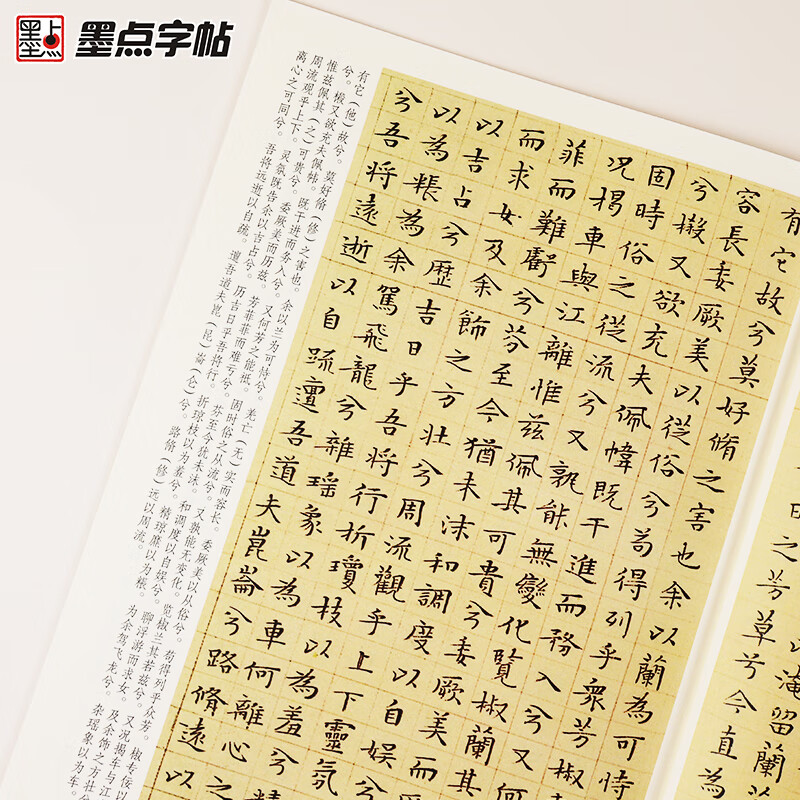 墨点
墨点字帖
有它故兮莫好脩之害也余以蘭為可恃
容長委厥美以從俗兮苟得列乎衆芳椒
兮樧又欲充夫佩幃既干進而務入兮又
固時俗之從流兮又孰能無變化覽椒蘭其
况揭車與江離惟兹佩其可貴兮委厥美而
菲而難虧兮芬至今猶未沬和調度以自娱兮
而求女及余飾之方壯兮周流觀乎上下靈氛
以吉占兮歷吉日乎吾將行折瓊枝以為羞兮精
以為粻為余駕飛龍兮雜瑶象以為車何離心之
兮吾將遠逝以自疏邅吾道夫崑崙兮路脩遠以
有它（他）故兮。莫好脩（修）之害也。余以兰为可恃兮。羌亡（无）实而容长。委厥美以从俗兮。苟得列乎众芳。椒专佞以
兮。樧又欲充夫佩帏。既干进而务入兮。又何芳之能祗。固时俗之从流兮。又孰能无变化。览椒兰其若兹兮。又况揭车与江
惟兹佩其（之）可贵兮。委厥美而历兹。芳菲菲而难亏兮。芬至今犹未沬。和调度以自娱兮。聊浮游而求女。及余饰之方壮
周流观乎上下。灵氛既告余以吉占兮。历吉日乎吾将行。折琼枝以为羞兮。精琼爢以为粻。为余驾飞龙兮。杂瑶象以为车。
离心之可同兮。吾将远逝以自疏。邅吾道夫崑（昆）崙（仑）兮。路脩（修）远以周流。
淹留蘭
之芳草兮今直為